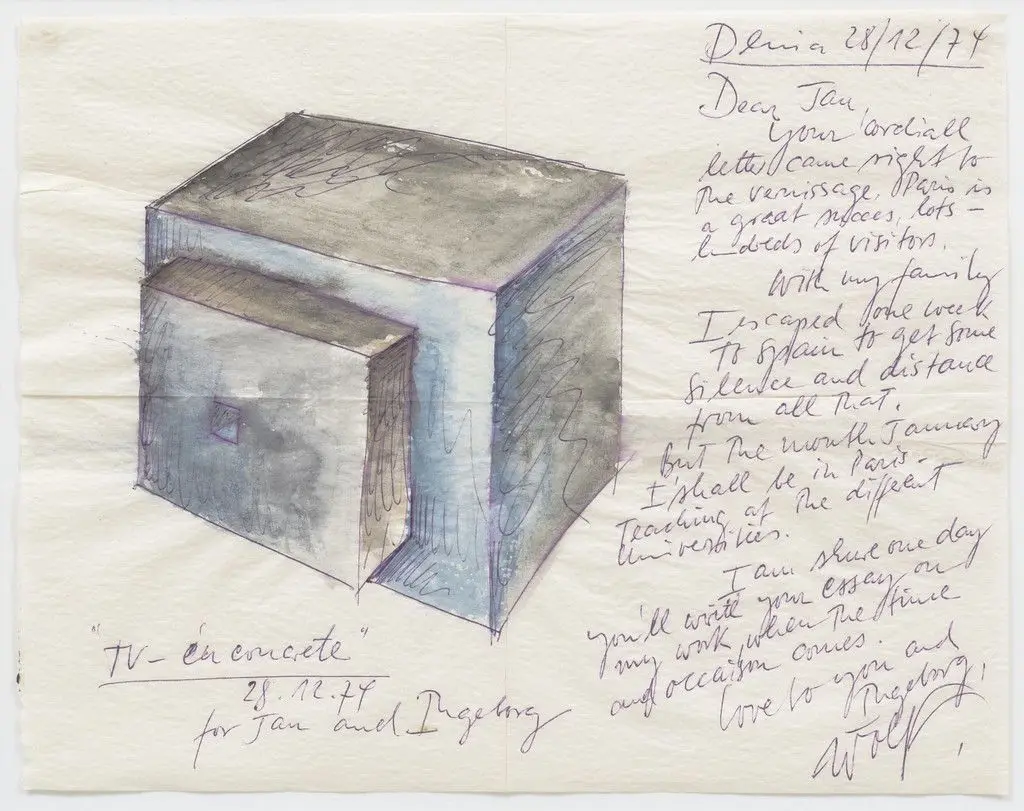 Denia 28/12/74
Dear Jan,
your cordiall
letter came right to
the vernissage. Paris is
a great succes, lots –
hundreds of visitors.
With my family
I escaped one week
to Spain to get some
silence and distance
from all that.
But the month January
I shall be in Paris –
teaching at the different
universities.
I am shure one day
you'll write your essay on
my work, when the time
and occaison comes.
Love to you and
Ingeborg,
Wolf
"TV – én concrete"
28.12.74
for Jan and Ingeborg